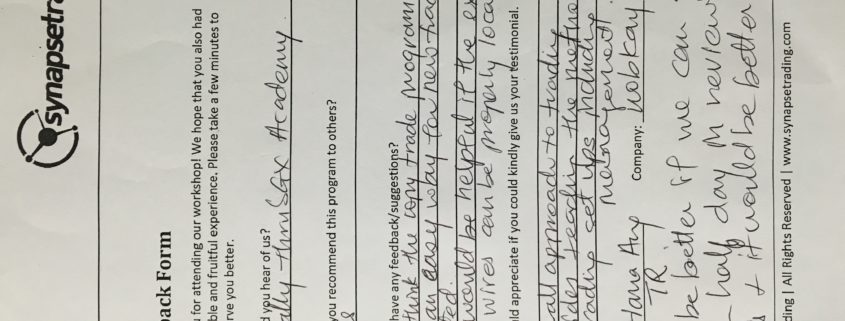 synapsetra
back Form
for attending our workshop! We hope that you also had
ble and fruitful experience. Please take a few minutes to
rve you better.
d you hear of us?
ally thru SGX Academy.
you recommend this program to others?
have any feedback/suggestions?
think the copy trade program
an easy way for new trad
ted.
would be helpful if the ex
wires can be properly loca
ld appreciate if you could kindly give us your testimonial.
all approach to trading
ides teaching the metho
rading set ups including
management.
Company:
TR
be better if we can
half day in review
& it would be better
ding | All Rights Reserved | www.synapsetrading.com